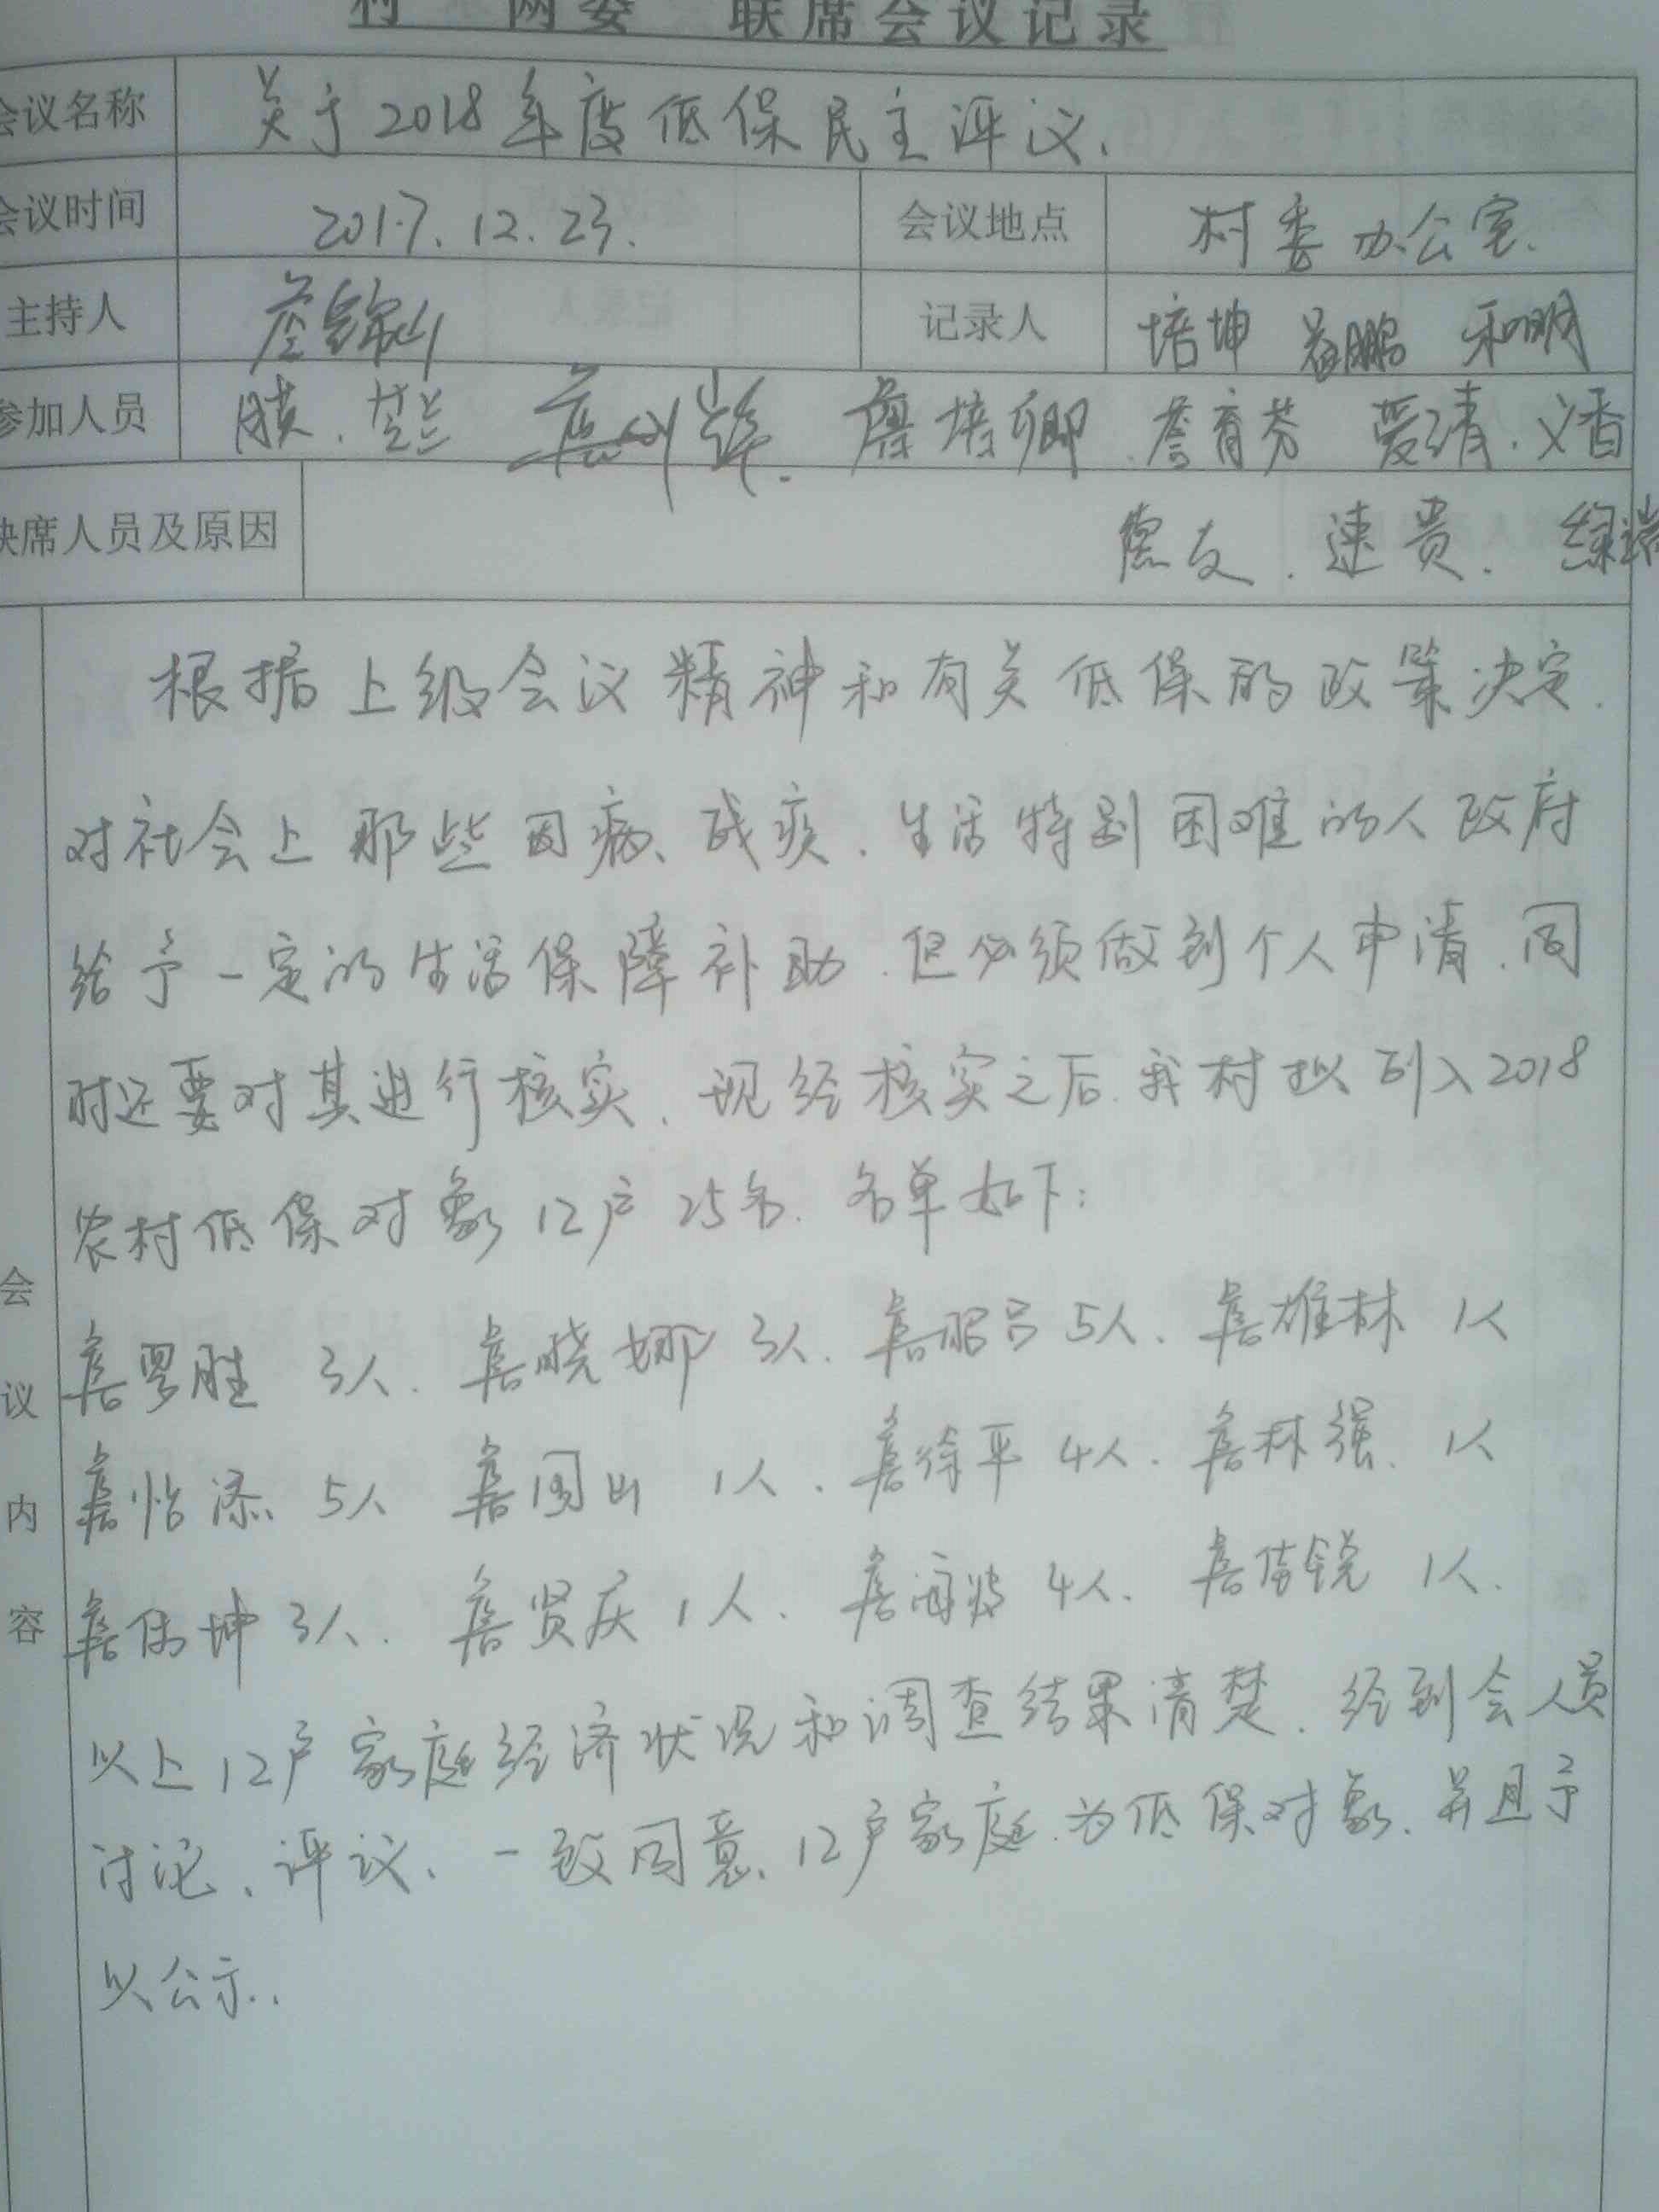 村 两委 联席会议记录
会议名称 关于2018年度低保民主评议.
会议时间 2017.12.23. 会议地点 村委办公室.
主持人 记录人 培坤 和明
参加人员 詹培卿 詹育芬 爱清.义香
缺席人员及原因 德友.速贵.
根据上级会议精神和有关低保的政策决定.
对社会上那些因病、残疾.生活特别困难的人政府
给予一定的生活保障补助.但必须做到个人申请.同
时还要对其进行核实.现经核实之后.我村拟列入2018
农村低保对象12户25名.名单如下:
詹罗胜 3人.詹晓娜 3人.詹昭吕 5人.詹雄林 1人
詹怡添 5人 詹国出 1人.詹徐平 4人.詹林强.1人
詹伟坤 3人.詹贤庆 1人.詹海波 4人.詹信锐 1人.
以上12户家庭经济状况和调查结果清楚.经到会人员
讨论、评议、一致同意、12户家庭.为低保对象.并且予
以公示..
会
议
内
容